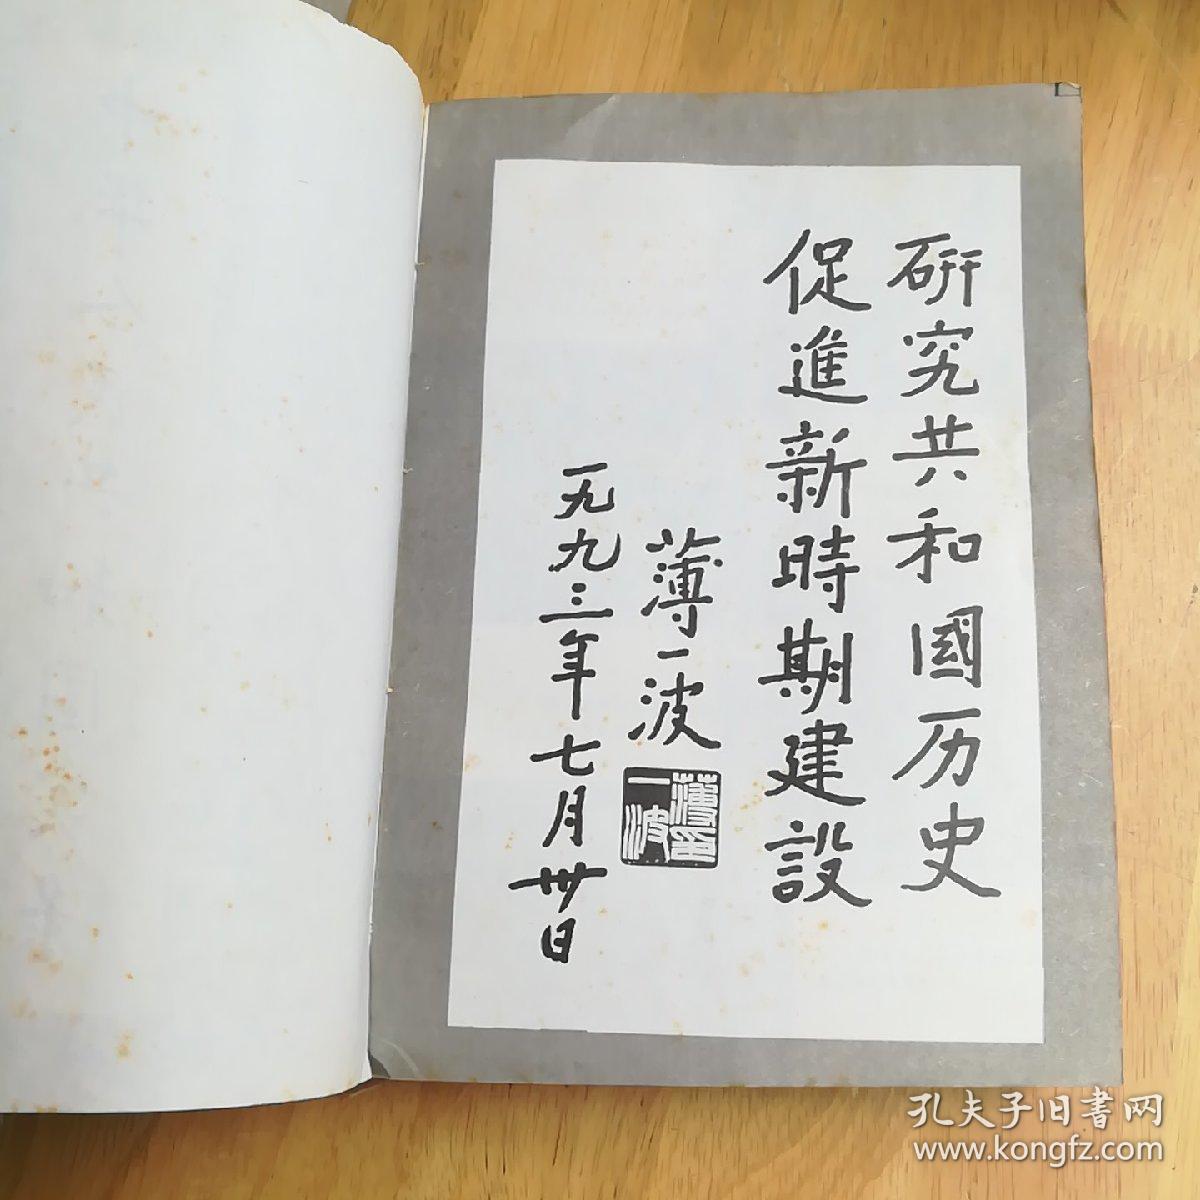 研究共和國历史
促進新時期建設
薄一波
薄一波印
一九九三年七月卅日
孔夫子旧書网
www.kongfz.com